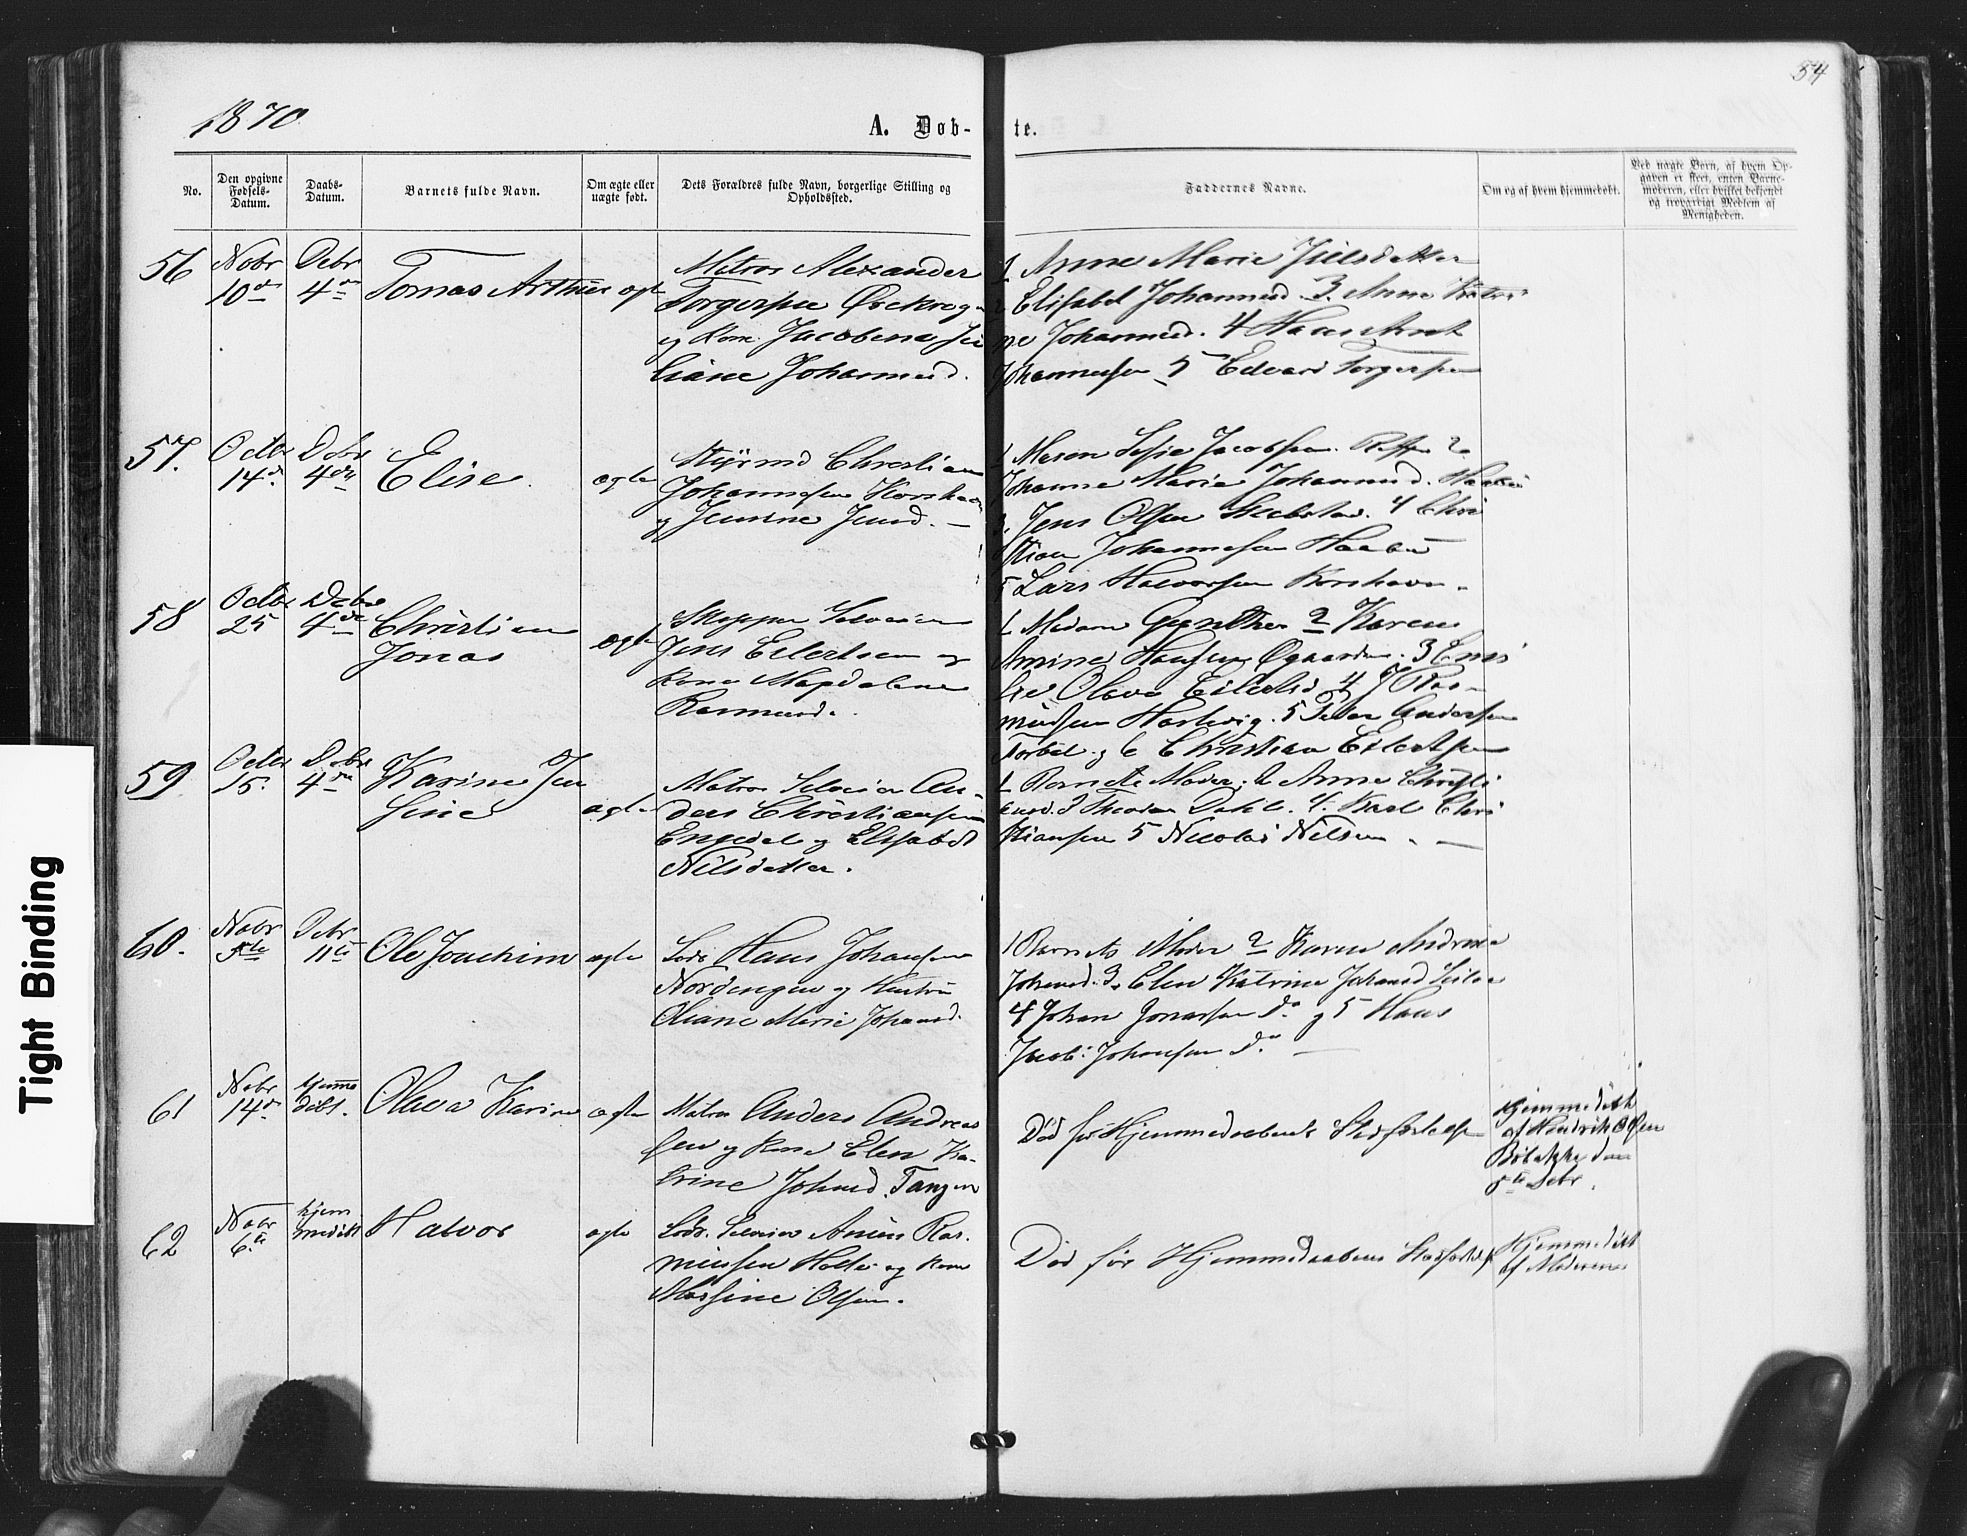 54
1870
A. Døb-te.
No.
Den opgivne Fødsels-Datum.
Daabs-Datum.
Barnets fulde Navn.
Om ægte eller uægte født.
Dets Forældres fulde Navn, borgerlige Stilling og Opholdssted.
Faddernes Navne.
Om og af hvem hjemmedøbt.
Ved uægte Børn, af hvem Op-
gaven er skeet, enten Barne-
moderen, eller hvilket bekjendt
og troværdigt Medlem af
Menigheden.
56
Nobr 10de
Debr 4de
Tomas Arthur
ægte
Matros Alexander
Torgersen
og Kone Jacobine Ju
liane Johannesd.
1 Anne Marie Jielsdatter
2 Elisabet Johannesd. 3. Anne Katri
ne Johannesd. 4 Hans
Johannesen 5 Edvard Torgersen
57.
Octbr 14de
Debr 4de
Elise
ægte
Styrmd Christian
Johannesen Korshavn
og Jensine Jensd.
1 Maren Sofie Jacobsen. 2
Johanne Marie Johannesd.
3. Jens Olsen 4 Chri
stian Johannesen
5 Lars Halvorsen Korshavn.
58
Octbr 25
Debr 4de
Christian
Jonas
ægte
Jens Eilertsen og
Kone Magdalene
Rasmusd.
1 Madam Gunther 2 Karen
Amine Hansen Øgaarden. 3
Olava Eilertsd 4 J Ras-
mussen Hartvig. 5 Peter Andersen
og 6 Christian Eilertsen
59
Octbr 15.
Debr 4de
Karine Jen
sine
ægte
Matros An-
ders Christiansen
Engdal og Elisabet
Nilsdatter.
1 Barnets Moder. 2 Anne Christi
ansd. 3 Theodor Dahl. 4. Karl Chri
stiansen 5 Nicolai Nilsen
60.
Nobr 5te
Debr 11te
Ole Joachim
ægte
Lods Hans Johansen
Nordengen og Hustru
Oliane Marie Johansd.
1 Barnets Moder 2 Karen Andrea
Johansd. 3. Elen Katrine Johansd
4 Johan Jonassen Do og 5 Hans
Jacob Johansen Do
61
Nobr 14de
hjemme
døbt.
Olava Karine
ægte
Matros Anders Andreas
sen og Kone Elen Ka-
trine Johnsd. Tangen
Død før Hjemmedaabens Stadfæstelse
Hjemmedøbt
af Hendrik Olsen
den
5te Debr.
62
Nobr 6te
hjem
medøbt
Halvor
ægte
Lods. Ras-
mussen Holte og Kone
Massine Olsen.
Død før Hjemmedaabens Stadfæstelse
Hjemmedøbt
af Moderen
Tight Binding